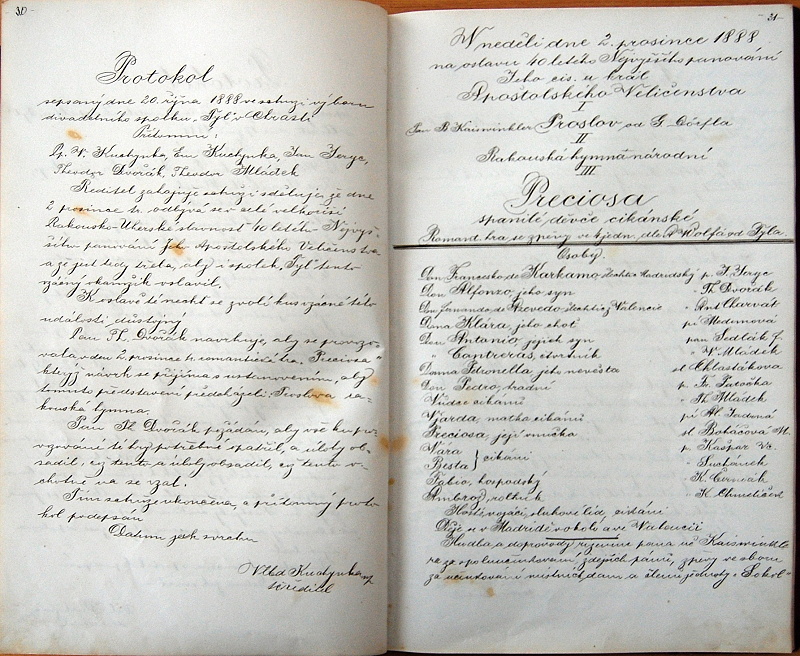 30
Protokol
sepsaný dne 20. října 1888 ve schůzi výboru
divadelního spolku „Tyl" v Chrasti
Přítomni:
Pp. V. Kuchynka, Em. Kuchynka, Jan Jeryc,
Theodor Dvořák, Theodor Mládek
Ředitel zahajuje schůzi sděluje, že dne
2 prosince t. r. odbývá se v celé velkoříši
Rakousko-Uherské slavnost 40 letého Nejvyš-
šího panování Jeho Apoštolského Veličenstva
a že jest tedy třeba, aby i spolek „Tyl" tento
vzácný okamžik oslavil.
K oslavě té nechť se zvolí kus vzácné této
události důstojný
Pan Th. Dvořák navrhuje, aby se provozo-
vala v den 2. prosince t. r. romantická hra „Preciosa"
kterýž návrh se přijímá s ustanovením, aby
tomuto představení předcházeli: Proslov a ra-
kouská hymna.
Pan Th. Dvořák požádán, aby vše ku pro-
vozování té hry potřebné opatřil, a úlohy ob-
sadil, což tento
ochotně na se vzal.
Tím schůze ukončena, a přítomný proto-
kol podepsán
Datum jak svrchu
Vlad Kuchynka
ředitel
31
V neděli dne 2. prosince 1888
na oslavu 40 letého Nejvyššího panování
Jeho cis. a král
Apoštolského Veličenstva
I
Pan B Kaiswinkler Proslov od G. Dörfla
II
Rakouská hymna národní
III
Preciosa
spanilé děvče cikánské
Romant. hra se zpěvy ve 4 jedn. dle P. A. Wolfa od Tyla.
Osoby.
Don Francesko de Karkamo, šlechtic Madridský p. J. Jeryc
Don Alfonzo, jeho syn " Th. Dvořák
Don Fernando de Azevedo šlechtic z Valencie " Ant Charvát
Dona Klára, jeho choť pí Medunová
Don Antonio, jejich syn pan Sedlák f.
" Contreras, čtvrtník " V. Mládek
Donna Petronella, jeho nevěsta sl Chlastákova
Don Pedro, hradní p. Fr. Patočka
Vůdce cikánů " Th. Mládek
Vjarda, matka cikánů pí Al. Jardová
Preciosa, její vnučka sl Boháčová M.
Vara } cikáni p. Kašpar Vc.
Besta " Suchánek
Fabio, hospodský " K. Černiak
Ambrož, rolník " K. Chmelíček
Hosti, vojáci, sluhové lid, cikáni
Děje se v Madridě v okolí a ve Valencii
Hudba a doprovody řízením pana uč Kaiswinkle
ra za spoluúčinkování zdejších pánů, zpěvy ve sboru
za účinkování místních dam, a členů jednoty „Sokol"